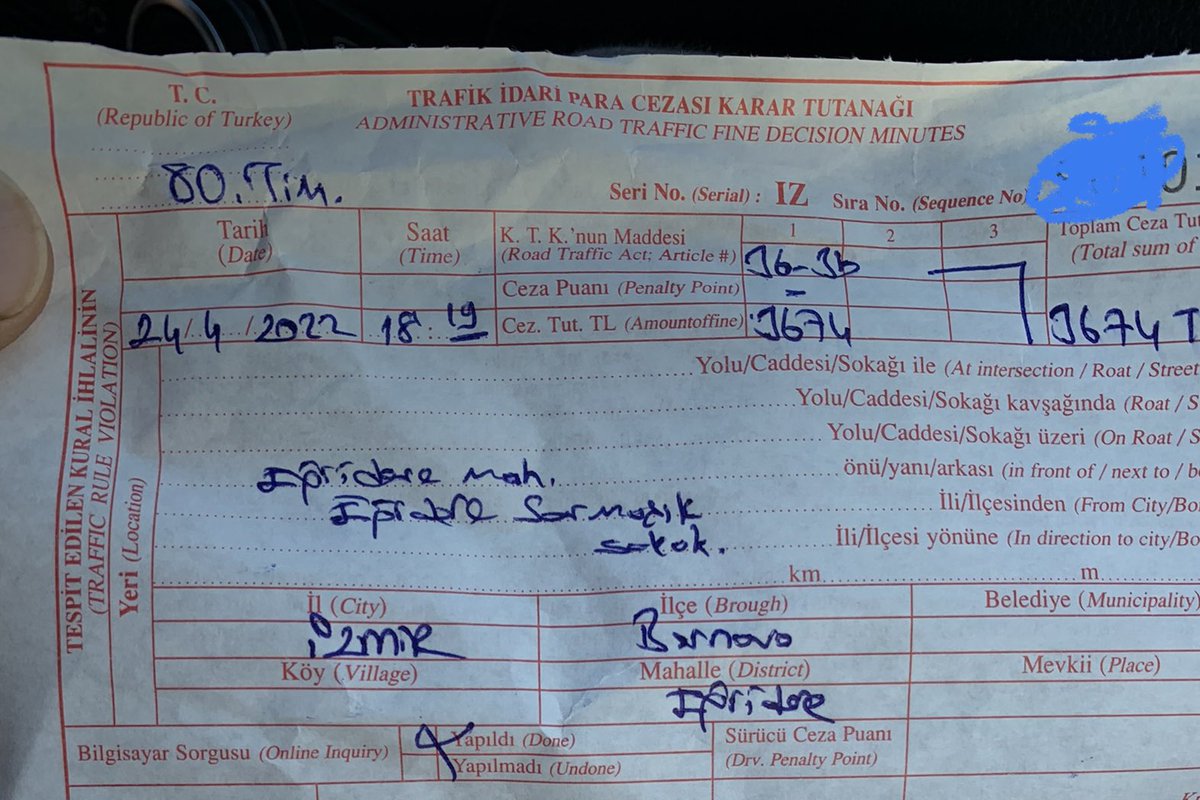 T. C.
(Republic of Turkey)
TRAFİK İDARİ PARA CEZASI KARAR TUTANAĞI
ADMINISTRATIVE ROAD TRAFFIC FINE DECISION MINUTES
80.Tim.
Seri No. (Serial) : IZ Sıra No. (Sequence No)
Tarih
(Date)
Saat
(Time)
K. T. K.'nun Maddesi
(Road Traffic Act; Article #)
1 2 3
Toplam Ceza Tut
(Total sum of
36-3b
Ceza Puanı (Penalty Point) -
24/4/2022 18:19 Cez. Tut. TL (Amountoffine) 3674 3674 T
TESPİT EDİLEN KURAL İHLALİNİN
(TRAFFIC RULE VIOLATION)
Yeri (Location)
Yolu/Caddesi/Sokağı ile (At intersection / Roat / Street
Yolu/Caddesi/Sokağı kavşağında (Roat / S
Yolu/Caddesi/Sokağı üzeri (On Roat / S
Eğridere mah. önü/yanı/arkası (in front of / next to / be
Eğridere Sarmaşık İli/İlçesinden (From City/Bo
sokak. İli/İlçesi yönüne (In direction to city/Bo
km m
İl (City) İlçe (Brough) Belediye (Municipality)
İzmir Bornova
Köy (Village) Mahalle (District) Mevkii (Place)
Eğridere
Bilgisayar Sorgusu (Online Inquiry)
Yapıldı (Done)
Yapılmadı (Undone)
Sürücü Ceza Puanı
(Drv. Penalty Point)